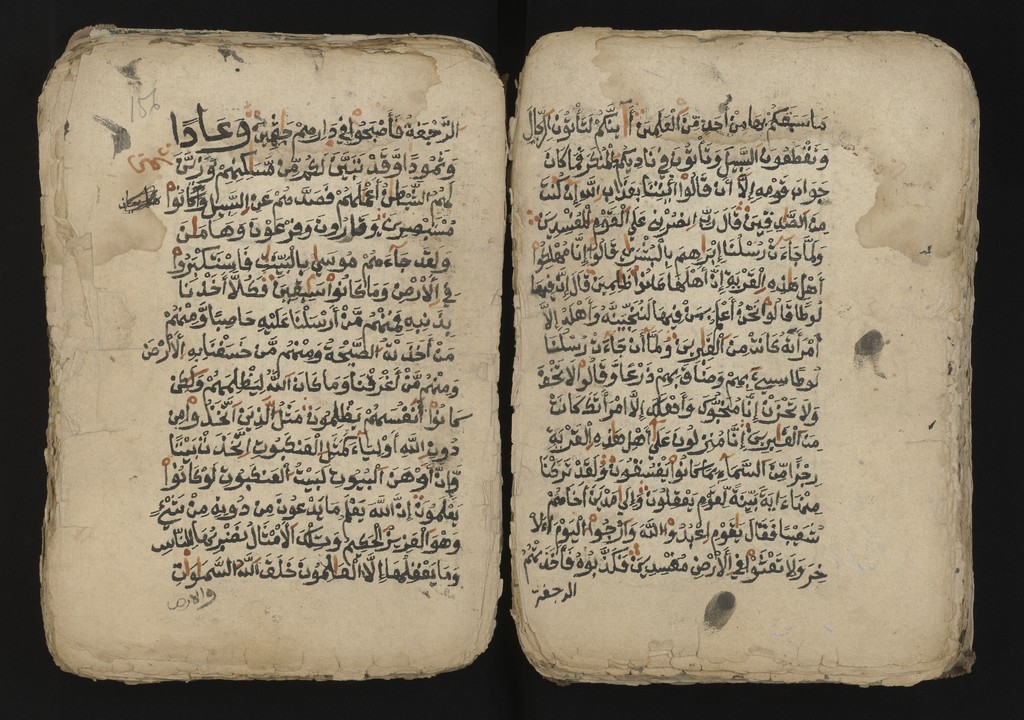 ما سبقكم بها من أحد من العلمين أئنكم لتأتون الرجال
وتقطعون السبيل وتأتون في ناديكم المنكر فما كان
جواب قومه إلا أن قالوا ائتنا بعذاب الله إن كنت
من الصدقين قال رب انصرني على القوم المفسدين
ولما جاءت رسلنا إبرهيم بالبشرى قالوا إنا مهلكوا
أهل هذه القرية إن أهلها كانوا ظلمين قال إن فيها
لوطا قالوا نحن أعلم بمن فيها لننجينه وأهله إلا
امرأته كانت من الغبرين ولما أن جاءت رسلنا
لوطا سيء بهم وضاق بهم ذرعا وقالوا لا تخف
ولا تحزن إنا منجوك وأهلك إلا امرأتك كانت
من الغبرين إنا منزلون على أهل هذه القرية
رجزا من السماء بما كانوا يفسقون ولقد تركنا
منها ءاية بينة لقوم يعقلون وإلى مدين أخاهم
شعيبا فقال يقوم اعبدوا الله وارجوا اليوم الأ
خر ولا تعثوا في الأرض مفسدين فكذبوه فأخذتهم
الرجفة
الرجفة فأصبحوا في دارهم جثمين وعادا
وثمودا وقد تبين لكم من مسكنهم وزين
لهم الشيطن أعملهم فصدهم عن السبيل وكانوا
مستبصرين وقارون وفرعون وهامن
ولقد جاءهم موسى بالبينت فاستكبروا
في الأرض وما كانوا سبقين فكلا أخذنا
بذنبه فمنهم من أرسلنا عليه حاصبا ومنهم
من أخذته الصيحة ومنهم من خسفنا به الأرض
ومنهم من أغرقنا وما كان الله ليظلمهم ولكن
كانوا أنفسهم يظلمون مثل الذين اتخذوا من
دون الله أولياء كمثل العنكبوت اتخذت بيتا
وإن أوهن البيوت لبيت العنكبوت لو كانوا
يعلمون إن الله يعلم ما يدعون من دونه من شيء
وهو العزيز الحكيم وتلك الأمثال نضربها للناس
وما يعقلها إلا العلمون خلق الله السموت
والأرض